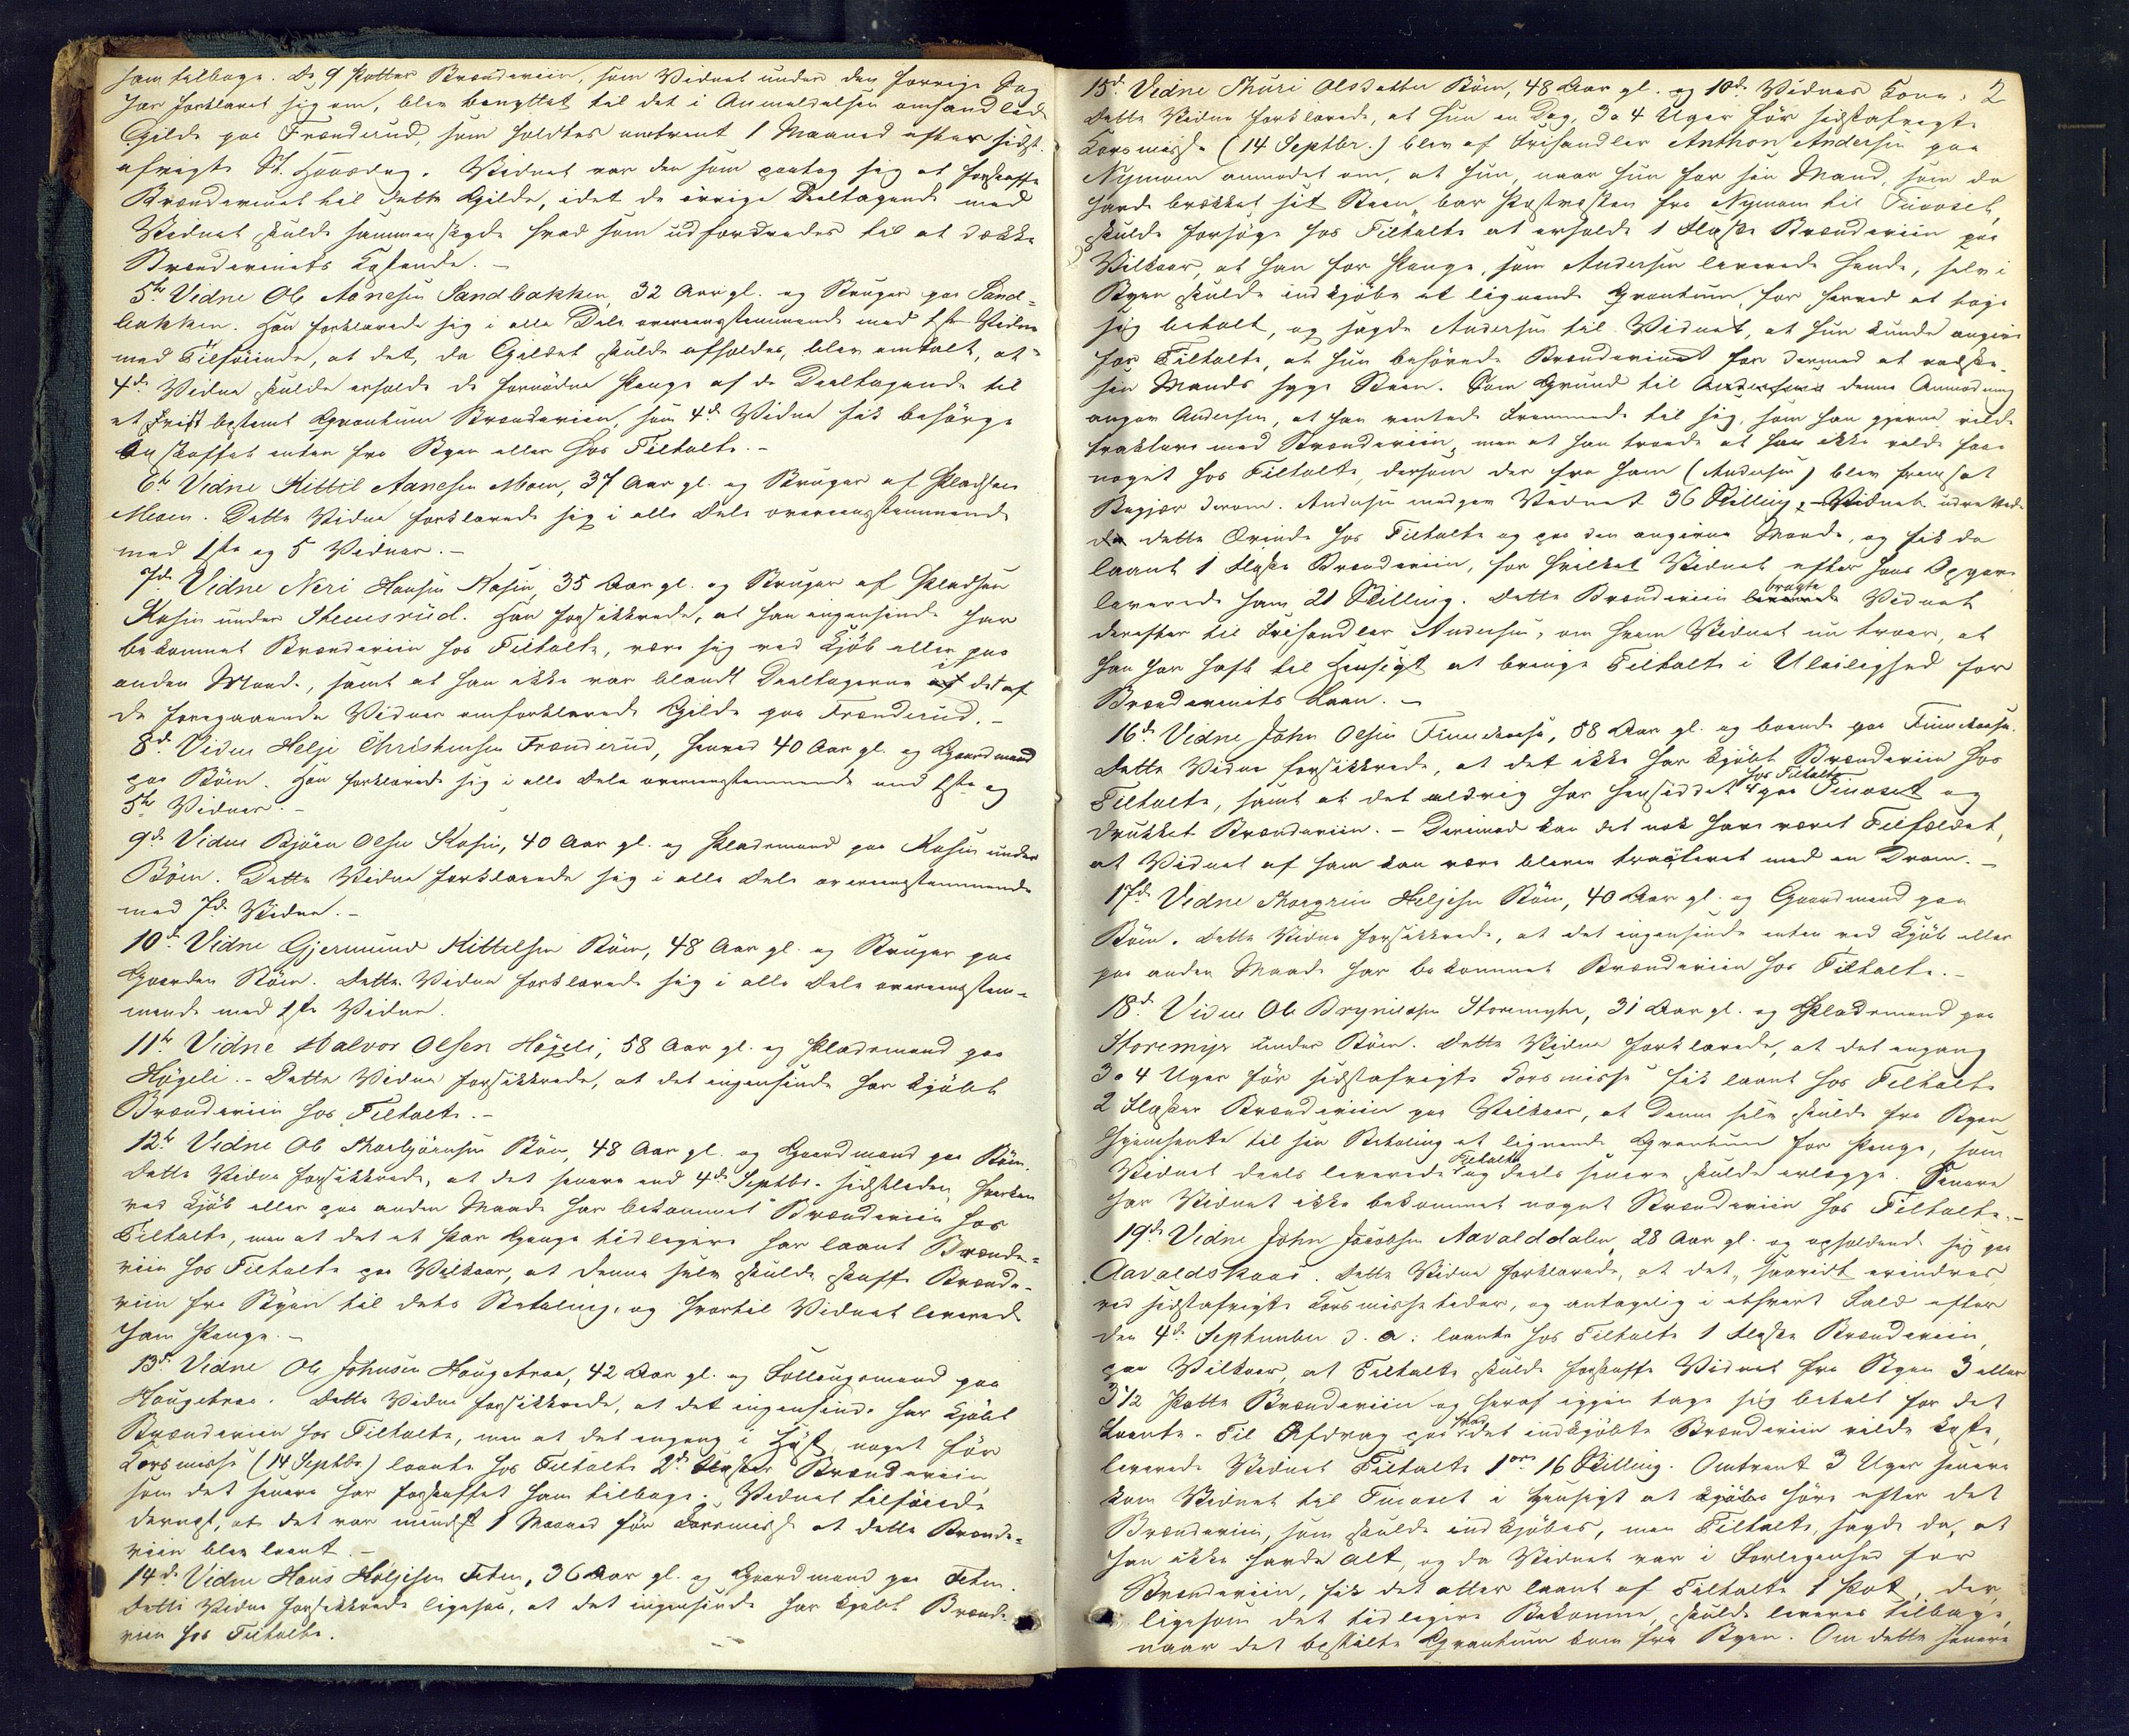 ham tilbage. De 9 Potter Brændeviin, som Vidnet under den forrige Sag
har forklaret sig om, blev benyttet til det i Anmeldelsen omhandlede
Gilde paa Frænderud, som holdtes omtrent 1 Maaned efter sidst
afvigte St. Hansdag. Vidnet var den som paatog sig at forskaffe
Brændevinet til dette Gilde, idet de øvrige Deeltagende med
Vidnet skulde sammenskyde hvad som udfordredes til at dække
Brændevinets Kostende. -
5te Vidne Ole Aanesen Sandbakken, 32 Aar gl. og Bruger paa Sand-
bakken. Han forklarede sig i alle Dele overeensstemmende med 1ste Vidne
med Tilføiende, at det, da Gildet skulde afholdes, blev omtalt, at
4de Vidne skulde erholde de fornødne Penge af de Deeltagende til
et vist bestemt Qvantum Brændeviin, som 4de Vidne fik besørge
anskaffet enten fra Byen eller hos Tiltalte. -
6te Vidne Kittil Aanesen Moen, 37 Aar gl. og Bruger af Pladsen
Moen. Dette Vidne forklarede sig i alle Dele overeensstemmende
med 1ste og 5 Vidner. -
7de Vidne Neri Hansen Kasin, 35 Aar gl. og Bruger af Pladsen
Kasin under Stensrud. Han forsikkrede, at han ingensinde har
bekommet Brændeviin hos Tiltalte, være sig ved Kjøb eller paa
anden Maade, samt at han ikke var blandt Deeltagerne i det af
de foregaaende Vidner omforklarede Gilde paa Frænderud. -
8de Vidne Helje Christensen Frænderud, henved 40 Aar gl. og Gaardmand
paa Böen. Han forklarede sig i alle Dele overeensstemmende med 1ste og
5te Vidner. -
9de Vidne Björn Olsen Kasin, 40 Aar gl. og Pladsmand paa Kasin under
Böen. Dette Vidne forklarede sig i alle Dele overeensstemmende
med 7de Vidne. -
10de Vidne Gjermund Kittelsen Böen, 48 Aar gl. og Bruger paa
Gaarden Böen. Dette Vidne forklarede sig i alle Dele overeensstem-
mende med 1ste Vidne.
11te Vidne Halvor Olsen Högeli, 58 Aar gl. og Pladsmand paa
Högeli. - Dette Vidne forsikkrede, at det ingensinde har kjøbt
Brændeviin hos Tiltalte. -
12te Vidne Ole Thorbjörnsen Böen, 48 Aar gl. og Gaardmand paa Böen.
Dette Vidne forsikkrede, at det senere end 4de Septbr. sidstleden hverken
ved Kjøb eller paa anden Maade har bekommet Brændeviin hos
Tiltalte, men at det et Par Gange tidligere har laant Brænde-
viin hos Tiltalte paa Vilkaar, at denne selv skulde skaffe Brænde-
viin fra Byen til dets Betaling, og hvortil Vidnet leverede
ham Penge. -
13de Vidne Ole Johnsen Haugetraa, 42 Aar gl. og Föllaugsmand paa
Haugetraa. Dette Vidne forsikkrede, at det ingensinde har kjøbt
Brændeviin hos Tiltalte, men at det engang i Høst, noget før
Korsmisse (14 Septbr.) laante hos Tiltalte 2de Flasker Brændeviin,
som det senere har forskaffet ham tilbage. Vidnet tilføiede
dernæst, at det var mindst 1 Maaned før Korsmisse at dette Brænde-
viin blev laant. -
14de Vidne Hans Holjesen Teten, 36 Aar gl. og Gaardmand paa Teten.
Dette Vidne forsikkrede ligesaa, at det ingensinde har kjøbt Brænde-
viin hos Tiltalte.
2
15de Vidne Thuri Olsdatter Böen, 48 Aar gl. og 10de Vidnes Kone.
Dette Vidne forklarede, at hun en Dag, 3 a 4 Uger før sidstafvigte
Korsmisse (14 Septbr.) blev af Frihandler Anthon Andersen paa
Nymoen anmodet om, at hun, naar hun for sin Mand, som da
havde brækket sit Been, bar Postvesken fra Nymoen til Tinoset,
skulde forsøge hos Tiltalte at erholde 1 Flaske Brændeviin paa
Vilkaar, at han for Penge, som Andersen leverede hende, selv i
Byen skulde indkjøbe et lignende Qvantum, for herved at tage
sig betalt, og sagde Andersen til Vidnet, at hun kunde angive
hos Tiltalte, at hun behøvede Brændevinet for dermed at vadske
sin Mands syge Been. Som Grund til denne Anmodning
angav Andersen, at han ventede Fremmede til sig, som han gjerne vilde
traktere med Brændeviin, men at han troede at han ikke vilde faae
noget hos Tiltalte, dersom der fra ham (Andersen) blev fremsat
Begjær derom. Andersen medgav Vidnet 36 Skilling, Vidnet udrettede
da dette Ærinde hos Tiltalte og paa den angivne Maade, og fik da
laant 1 Flaske Brændeviin, for hvilket Vidnet efter hans Opgave
leverede ham 21 Skilling. Dette Brændeviin bragte Vidnet
derefter til Frihandler Andersen, om hvem Vidnet nu troer, at
han har havt til Hensigt at bringe Tiltalte i Uleilighed for
Brændevinets Laan. -
16de Vidne John Olsen Finnekaasa, 58 Aar gl. og boende paa Finnekaasa.
Dette Vidne forsikkrede, at det ikke har kjøbt Brændeviin hos
Tiltalte, samt at det aldrig har hensiddet hos Tiltalte paa Tinoset og
drukket Brændeviin. - Derimod kan det nok have været Tilfældet,
at Vidnet af ham kan være bleven tracteret med en Dram. -
17de Vidne Thorgrim Heljesen Böen, 40 Aar gl. og Gaardmand paa
Böen. Dette Vidne forsikkrede, at det ingensinde enten ved Kjøb eller
paa anden Maade har bekommet Brændeviin hos Tiltalte. -
18de Vidne Ole Brynildsen Storemyhr, 31 Aar gl. og Pladsmand paa
Storemyr under Böen. Dette Vidne forklarede, at det engang
3 a 4 Uger før sidstafvigte Korsmisse fik laant hos Tiltalte
2 Flasker Brændeviin paa Vilkaar, at Denne selv skulde fra Byen
hjemhente til sin Betaling et lignende Qvantum for Penge, som
Vidnet deels leverede Tiltalte og deels senere skulde erlægge. Senere
har Vidnet ikke bekommet noget Brændeviin hos Tiltalte. -
19de Vidne John Jacobsen Aavalddalen, 28 Aar gl. og opholdende sig paa
Aavaldskaas. Dette Vidne forklarede, at det, saavidt erindres
ved sidstafvigte Korsmissetider, og antagelig i ethvert Fald efter
den 4de September d. a. laante hos Tiltalte 1 Flaske Brændeviin
paa Vilkaar, at Tiltalte skulde forskaffe Vidnet fra Byen 3 eller
3 1/2 Potte Brændeviin og heraf igjen tage sig betalt for det
Laante. Til Afdrag paa hvad det indkjøbte Brændeviin vilde koste,
leverede Vidnet Tiltalte 1 ort 16 Skilling. Omtrent 3 Uger senere
kom Vidnet til Tinoset i Hensigt at høre efter det
Brændeviin, som skulde indkjøbes, men Tiltalte sagde da, at
han ikke havde alt, og da Vidnet var i Forlegenhed for
Brændeviin, fik det atter laant af Tiltalte 1 Pot, der,
ligesom det tidligere Bekomne, skulde leveres tilbage,
naar det bestilte Qvantum kom fra Byen. Om dette senere